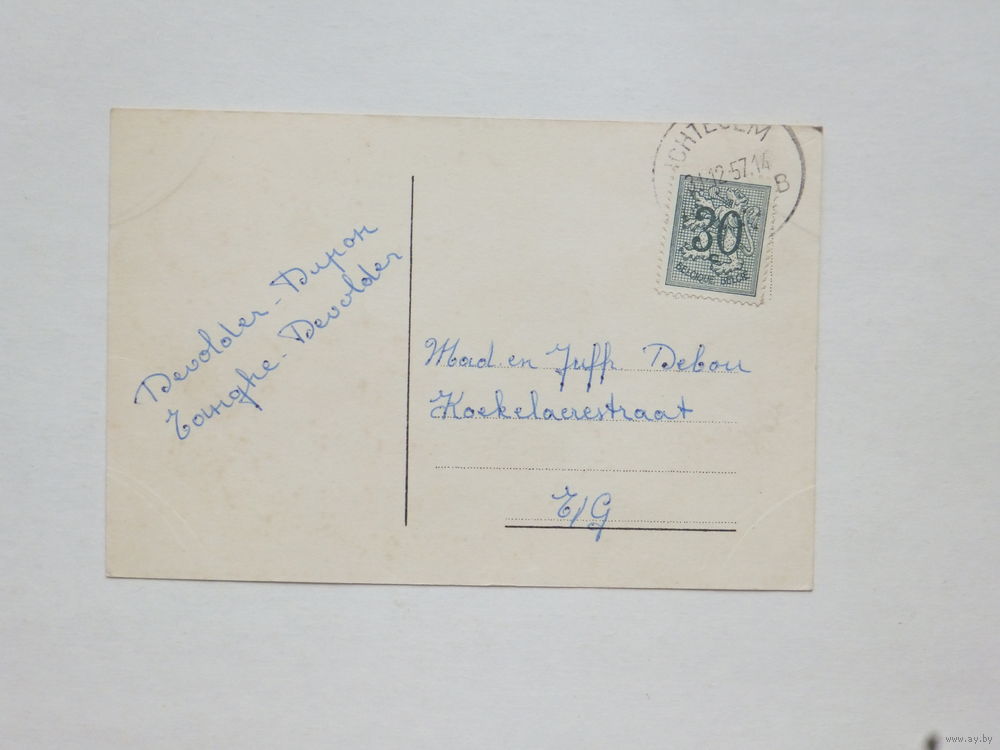 Devolder - Dupon
Tanghe - Devolder
ICHTEGEM
31-12-57.14
B
30
BELGIQUE BELGIE
Mad. en Juffr. Debou
Koekelaerestraat
E/G
www.ay.by